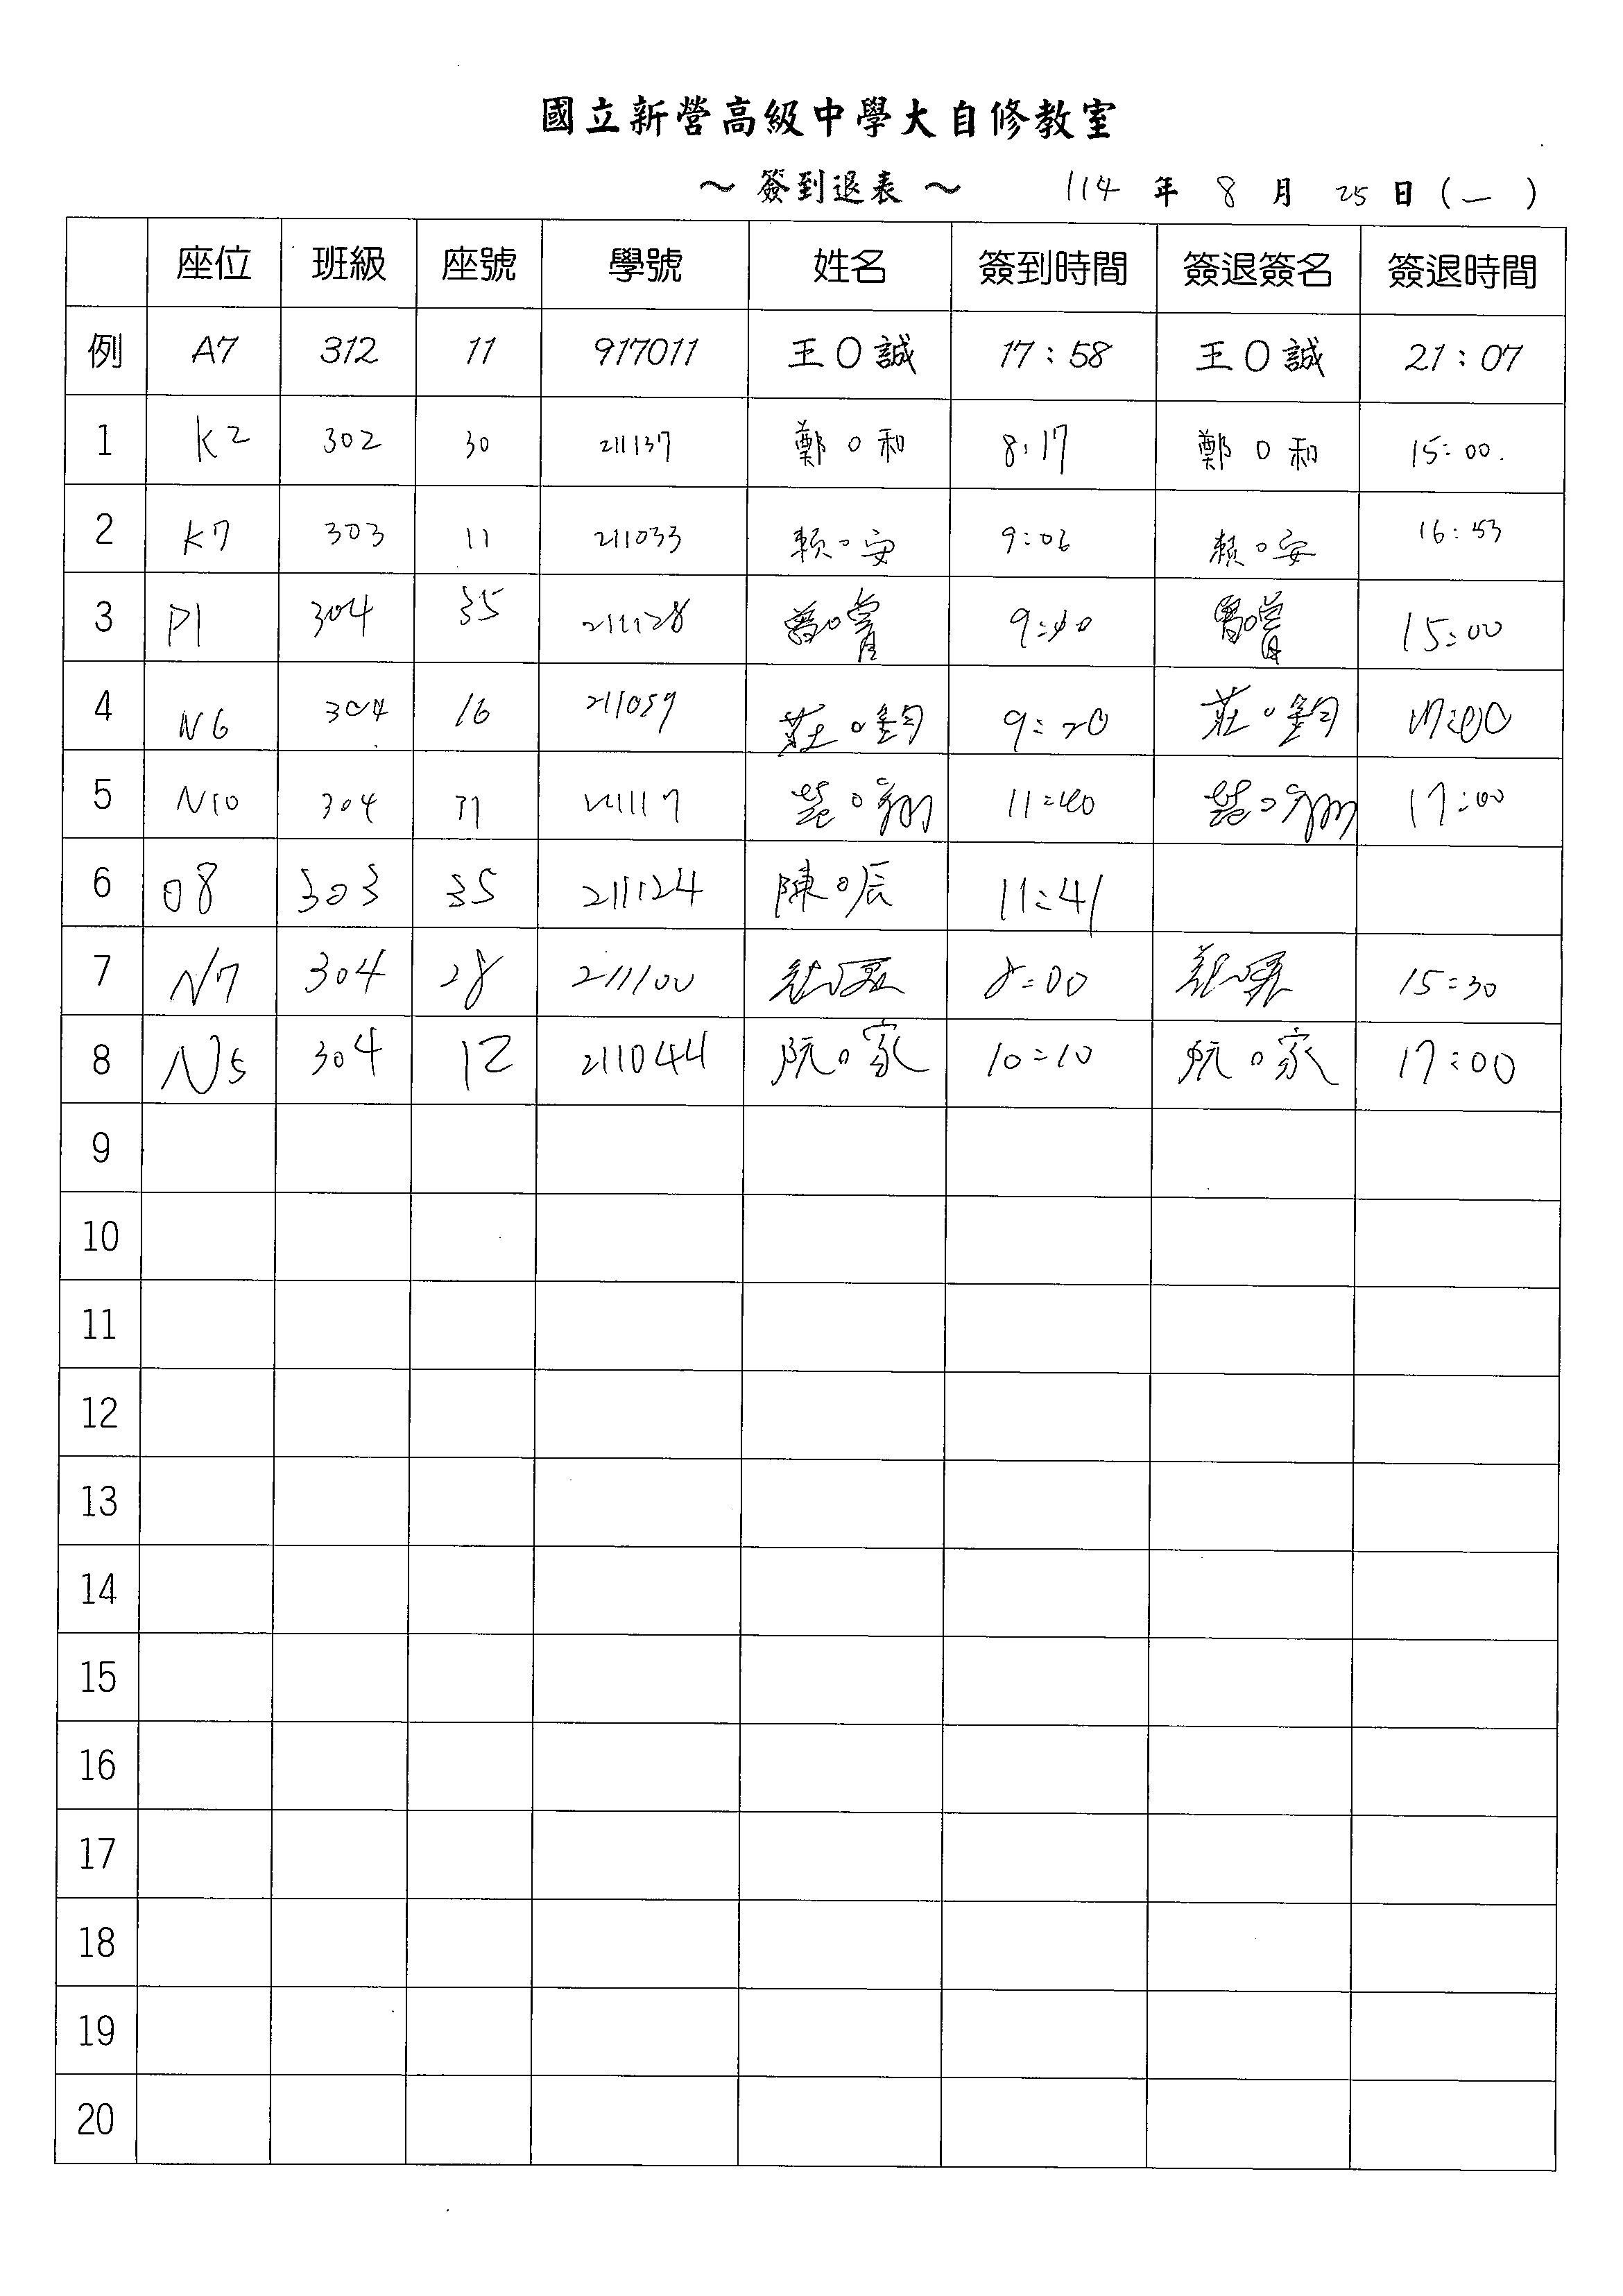 國立新營高級中學大自修教室
～ 簽到退表 ～ 114 年 8 月 25 日 ( 一 )
座位 班級 座號 學號 姓名 簽到時間 簽退簽名 簽退時間
例 A7 312 11 917011 王O誠 17:58 王O誠 21:07
1 K2 302 30 211137 鄭O和 8:17 鄭O和 15:00.
2 K7 303 11 211033 賴O安 9:06 賴O安 16:53
3 P1 304 35 211128 曾O 9:40 曾O 15:00
4 N6 304 16 211059 莊O鈞 9:20 莊O鈞 17:00
5 N10 304 31 211117 O翔 11:40 O翔 17:00
6 O8 303 35 211124 陳O辰 11:41
7 N7 304 28 211100 8:00 15:30
8 N5 304 12 211044 阮O家 10:10 阮O家 17:00
9
10
11
12
13
14
15
16
17
18
19
20